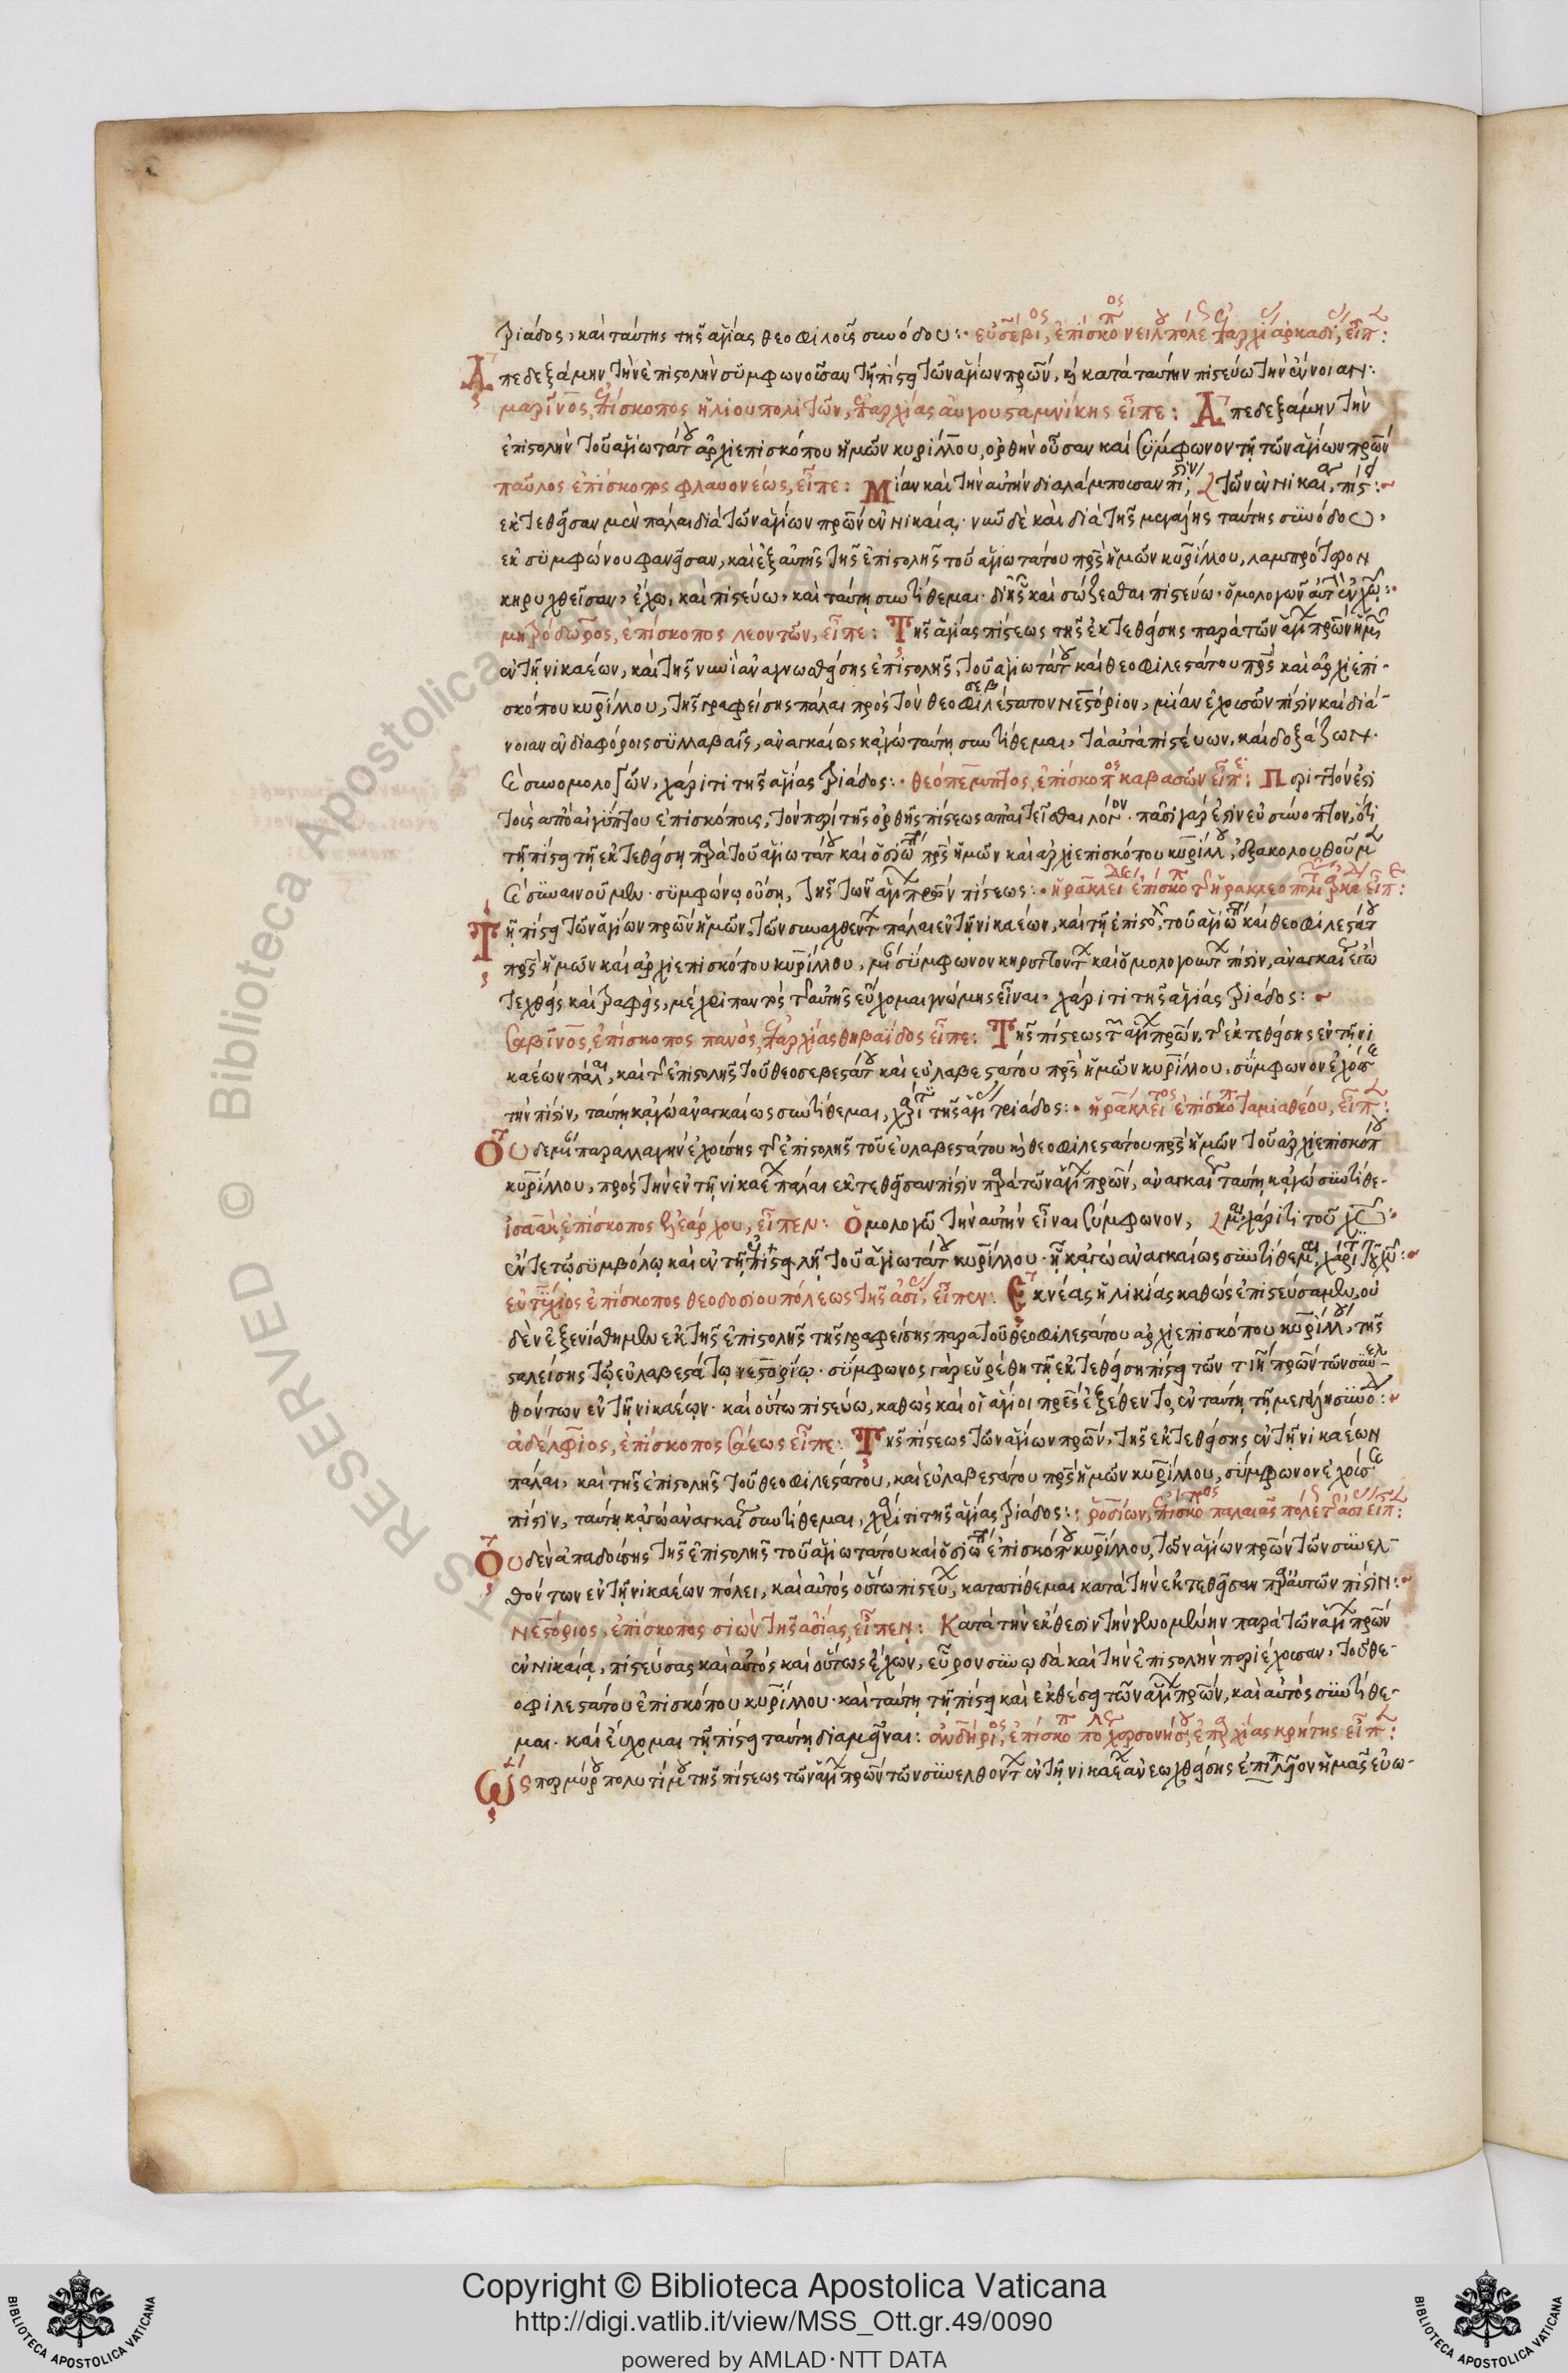 τριάδος, καὶ ταύτης τῆς ἁγίας θεοφιλοῦς συνόδου:· εὐσέβιος, ἐπίσκοπος νειλουπόλεως ἐπαρχίας ἀρκαδίας, εἶπεν:
Ἀπεδεξάμην τὴν ἐπιστολὴν σύμφωνον οὖσαν τῇ πίστει τῶν ἁγίων πρων, καὶ κατὰ ταύτην πιστεύω τὴν ἔννοιαν:
μαρῖνος, ἐπίσκοπος ἡλιουπολιτῶν, ἐπαρχίας αὐγουσταμνίκης εἶπε: Ἀπεδεξάμην τὴν
ἐπιστολὴν τοῦ ἁγιωτάτου ἀρχιεπισκόπου ἡμῶν κυρίλλου, ὀρθὴν οὖσαν καὶ σύμφωνον τῇ τῶν ἁγίων πρων
παῦλος ἐπίσκοπος φλαυονέως, εἶπε: Μίαν καὶ τὴν αὐτὴν διαλάμπουσαν πίστιν, τῶν ἐν νικαίᾳ
ἐκτεθεῖσαν μὲν πάλαι διὰ τῶν ἁγίων πρων ἐν νικαίᾳ· νῦν δὲ καὶ διὰ τῆς μεγάλης ταύτης συνόδου,
ἐκ συμφώνου φανεῖσαν, καὶ ἐξ αὐτῆς τῆς ἐπιστολῆς τοῦ ἁγιωτάτου πρς ἡμῶν κυρίλλου, λαμπρότερον
κηρυχθεῖσαν, ἔχω, καὶ πιστεύω, καὶ ταύτῃ συντίθεμαι· δι' ἧς καὶ σώζεσθαι πιστεύω· ὁμολογῶν αὐτὴν ἐν χω:·
μητρόδωρος, ἐπίσκοπος λεοντῶν, εἶπε: Τῆς ἁγίας πίστεως τῆς ἐκτεθείσης παρὰ τῶν ἁγίων πρων ἡμῶν
ἐν τῇ νικαέων, καὶ τῆς νυνὶ ἀναγνωσθείσης ἐπιστολῆς, τοῦ ἁγιωτάτου καὶ θεοφιλεστάτου πρς καὶ ἀρχιεπι-
σκόπου κυρίλλου, τῆς γραφείσης πάλαι πρὸς τὸν θεοφιλέστατον νεστόριον, μίαν ἐχουσῶν πίστιν καὶ διά-
νοιαν ἐν διαφόροις συλλαβαῖς, ἀναγκαίως κἀγὼ ταύτῃ συντίθεμαι, τὰ αὐτὰ πιστεύων, καὶ δοξάζων·
καὶ συνομολογῶν, χάριτι τῆς ἁγίας τριάδος:· θεόπεμπτος, ἐπίσκοπος καβασῶν εἶπε: Περιττόν ἐστι
τοῖς ἀπὸ αἰγύπτου ἐπισκόποις, τὸν περὶ τῆς ὀρθῆς πίστεως ἀπαιτεῖσθαι λόγον· πᾶσι γάρ ἐστιν εὐσύνοπτον, ὅτι
τῇ πίστει τῇ ἐκτεθείσῃ παρὰ τοῦ ἁγιωτάτου καὶ ὁσιωτάτου πρς ἡμῶν καὶ ἀρχιεπισκόπου κυρίλλου, ἐξακολουθοῦμεν
καὶ συναινοῦμεν· συμφώνῳ οὔσῃ, τῆς τῶν ἁγίων πρων πίστεως:· ἡρακλείδης ἐπίσκοπος ἡρακλέους εἶπε:
Τῇ πίστει τῶν ἁγίων πρων ἡμῶν, τῶν συναχθέντων πάλαι ἐν τῇ νικαέων, καὶ τῇ ἐπιστολῇ, τοῦ ἁγιωτάτου καὶ θεοφιλεστάτου
πρς ἡμῶν καὶ ἀρχιεπισκόπου κυρίλλου, σύμφωνον κηρυττόντων καὶ ὁμολογούντων πίστιν, ἀναγκαίως ἐγὼ
τεχθεὶς καὶ τραφεὶς, μέχρι παντὸς τῆς αὐτῆς εὔχομαι γνώμης εἶναι, χάριτι τῆς ἁγίας τριάδος:
σαβῖνος, ἐπίσκοπος πανὸς, ἐπαρχίας θηβαΐδος εἶπε: Τῆς πίστεως τῶν ἁγίων πρων, τῆς ἐκτεθείσης ἐν τῇ νι
καέων πάλαι, καὶ τῆς ἐπιστολῆς τοῦ θεοσεβεστάτου καὶ εὐλαβεστάτου πρς ἡμῶν κυρίλλου, σύμφωνον ἐχούσης
τὴν πίστιν, ταύτῃ κἀγὼ ἀναγκαίως συντίθεμαι, χάριτι τῆς ἁγίας τριάδος:· ἡράκλειτος ἐπίσκοπος ταμιαθέου, εἶπεν:
Οὐδεμίαν παραλλαγὴν ἐχούσης τῆς ἐπιστολῆς τοῦ εὐλαβεστάτου καὶ θεοφιλεστάτου πρς ἡμῶν τοῦ ἀρχιεπισκόπου
κυρίλλου, πρὸς τὴν ἐν τῇ νικαέων πάλαι ἐκτεθεῖσαν πίστιν παρὰ τῶν ἁγίων πρων, ἀναγκαίως ταύτῃ κἀγὼ συντίθε-
ἰσαὰκ, ἐπίσκοπος ἑλεάρχου, εἶπεν: Ὁμολογῶ τὴν αὐτὴν εἶναι σύμφωνον, μαι, χάριτι τοῦ χυ:·
ἔν τε τῷ συμβόλῳ καὶ ἐν τῇ ἐπιστολῇ τοῦ ἁγιωτάτου κυρίλλου· ᾗ κἀγὼ ἀναγκαίως συντίθεμαι, χάριτι τοῦ χυ:
εὐτύχιος ἐπίσκοπος θεοδοσιουπόλεως τῆς ἀσίας, εἶπεν: Ἐκ νέας ἡλικίας καθὼς ἐπιστεύσαμεν, οὐ
δὲν ἐξενίσθημεν ἐκ τῆς ἐπιστολῆς τῆς γραφείσης παρὰ τοῦ θεοφιλεστάτου ἀρχιεπισκόπου κυρίλλου, τῆς
σταλείσης τῷ εὐλαβεστάτῳ νεστορίῳ· σύμφωνος γὰρ εὑρέθη τῇ ἐκτεθείσῃ πίστει τῶν τιη πρων τῶν συνελ-
θόντων ἐν τῇ νικαέων· καὶ οὕτω πιστεύω, καθὼς καὶ οἱ ἅγιοι πρες ἐξέθεντο, ἐν ταύτῃ τῇ μεγάλῃ συνόδῳ:
ἀδέλφιος, ἐπίσκοπος σάεως εἶπε: Τῆς πίστεως τῶν ἁγίων πρων, τῆς ἐκτεθείσης ἐν τῇ νικαέων
πάλαι, καὶ τῆς ἐπιστολῆς τοῦ θεοφιλεστάτου, καὶ εὐλαβεστάτου πρς ἡμῶν κυρίλλου, σύμφωνον ἐχούσης
πίστιν, ταύτῃ κἀγὼ ἀναγκαίως συντίθεμαι, χάριτι τῆς ἁγίας τριάδος: ῥοσίων, ἐπίσκοπος παλαιᾶς πόλεως τῆς ἀσίας εἶπεν:
Οὐδὲν ἀπᾳδούσης τῆς ἐπιστολῆς τοῦ ἁγιωτάτου καὶ ὁσιωτάτου ἐπισκόπου κυρίλλου, τῶν ἁγίων πρων τῶν συνελ-
θόντων ἐν τῇ νικαέων πόλει, καὶ αὐτὸς οὕτω πιστεύων, κατατίθεμαι κατὰ τὴν ἐκτεθεῖσαν παρ' αὐτῶν πίστιν:
νεστόριος, ἐπίσκοπος σιὼν τῆς ἀσίας, εἶπεν: Κατὰ τὴν ἔκθεσιν τὴν γενομένην παρὰ τῶν ἁγίων πρων
ἐν νικαίᾳ, πιστεύσας καὶ αὐτὸς καὶ οὕτως ἔχων, εὗρον συνῳδὰ καὶ τὴν ἐπιστολὴν περιέχουσαν, τοῦ θε-
οφιλεστάτου ἐπισκόπου κυρίλλου· καὶ ταύτῃ τῇ πίστει καὶ ἐκθέσει τῶν ἁγίων πρων, καὶ αὐτὸς συντίθε-
μαι· καὶ εὔχομαι τῇ πίστει ταύτῃ διαμεῖναι: ἀνδήριος, ἐπίσκοπος πόλεως χερσονήσου, ἐπαρχίας κρήτης εἶπεν:
Ὥσπερ μύρου πολυτίμου τῆς πίστεως τῶν ἁγίων πρων τῶν συνελθόντων ἐν τῇ νικαέων ἀνεῳχθείσης ἐπὶ πλεῖον ἡμᾶς εὐω-
Copyright © Biblioteca Apostolica Vaticana
http://digi.vatlib.it/view/MSS_Ott.gr.49/0090
powered by AMLAD·NTT DATA